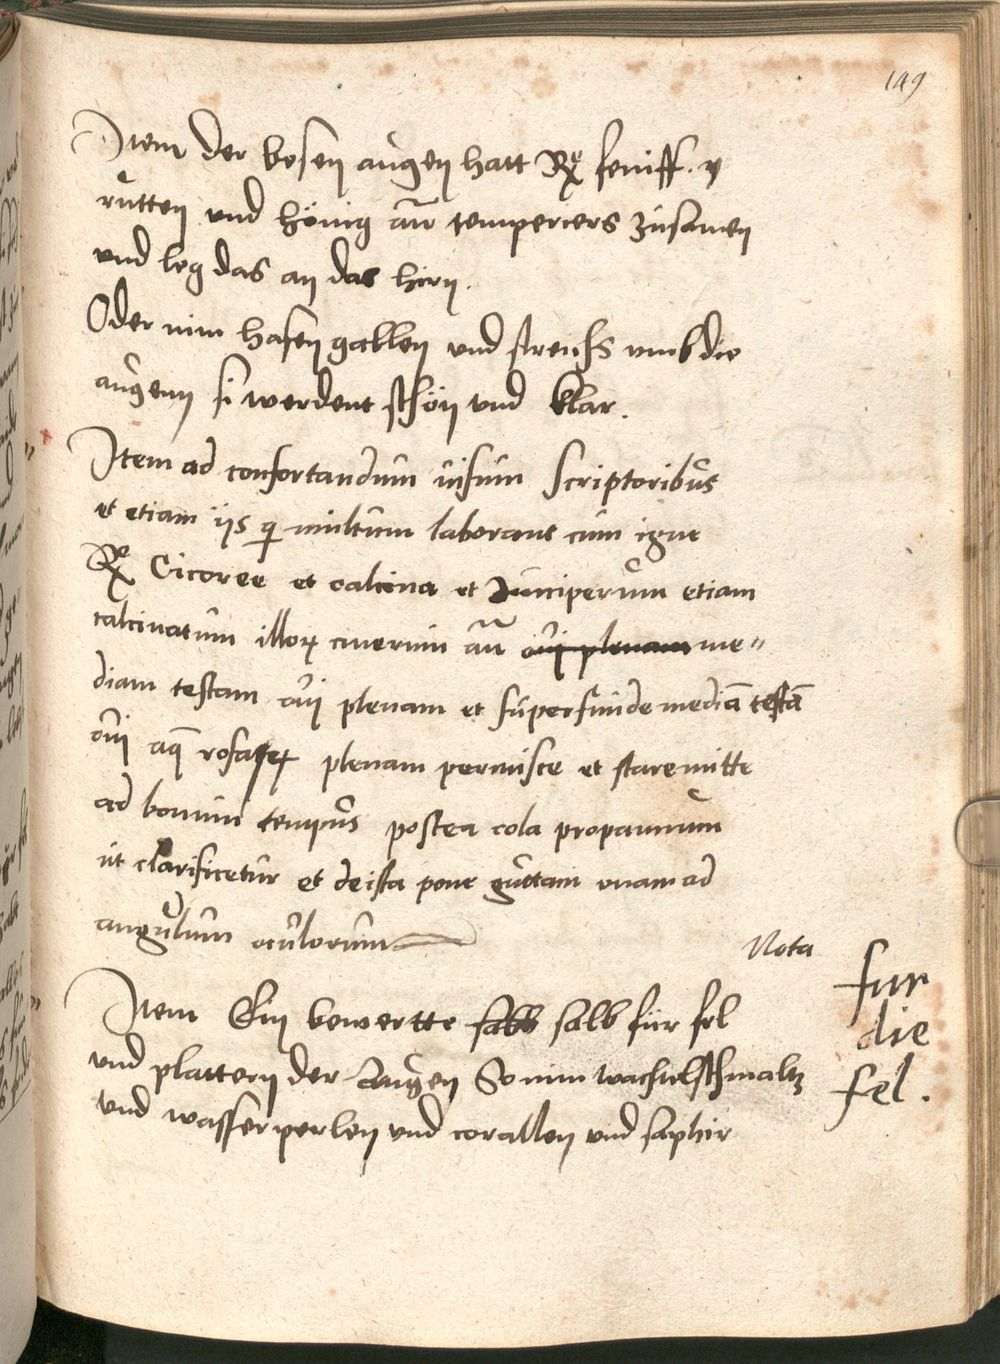 149
Item der bosen augen hatt Rx seniff. y
rutten und hönig añ temperiers zusamen
und leg das an das hirn.
Oder nim hasen gallen und streichs umb die
augenn si werdent schön und klar.
Item ad confortandum uisum scriptoribus
et etiam iis qi multum laborant cum igne
Rx Cicoree et calcina et Juniperum etiam
calcinatum illoꝝ cinerum añ ouj plenam me〃
diam testam ouj plenam et superfunde mediā testā
ouj aq̄ rosaꝝ plenam permisce et stare mitte
ad bonum tempus postea cola pro pannum
ut clarificetur et de ista pone guttam unam ad
angulum oculorum
Nota
Item Ein bewertte salb für fel
und plattern der Augen So nim wachtelschmaltz
und wasser perlen und corallen und saphir
fur
die
fel.